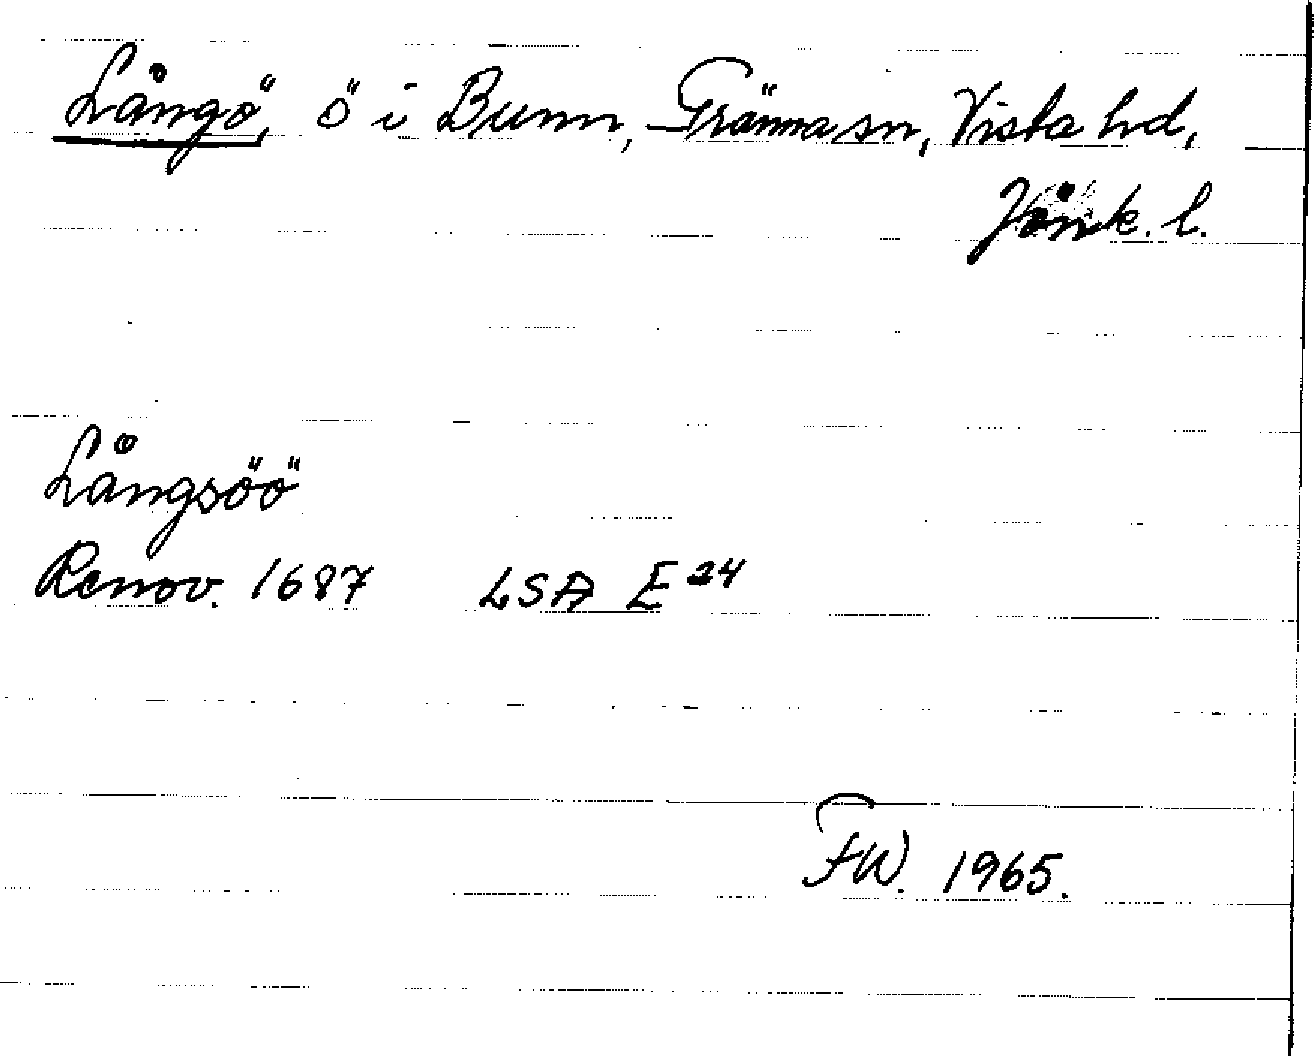 Långö, ö i Bunn, Gränna sn, Vista hd,
Jönk. l.
Långsöö
Renov. 1687 LSA E 24
FW. 1965.